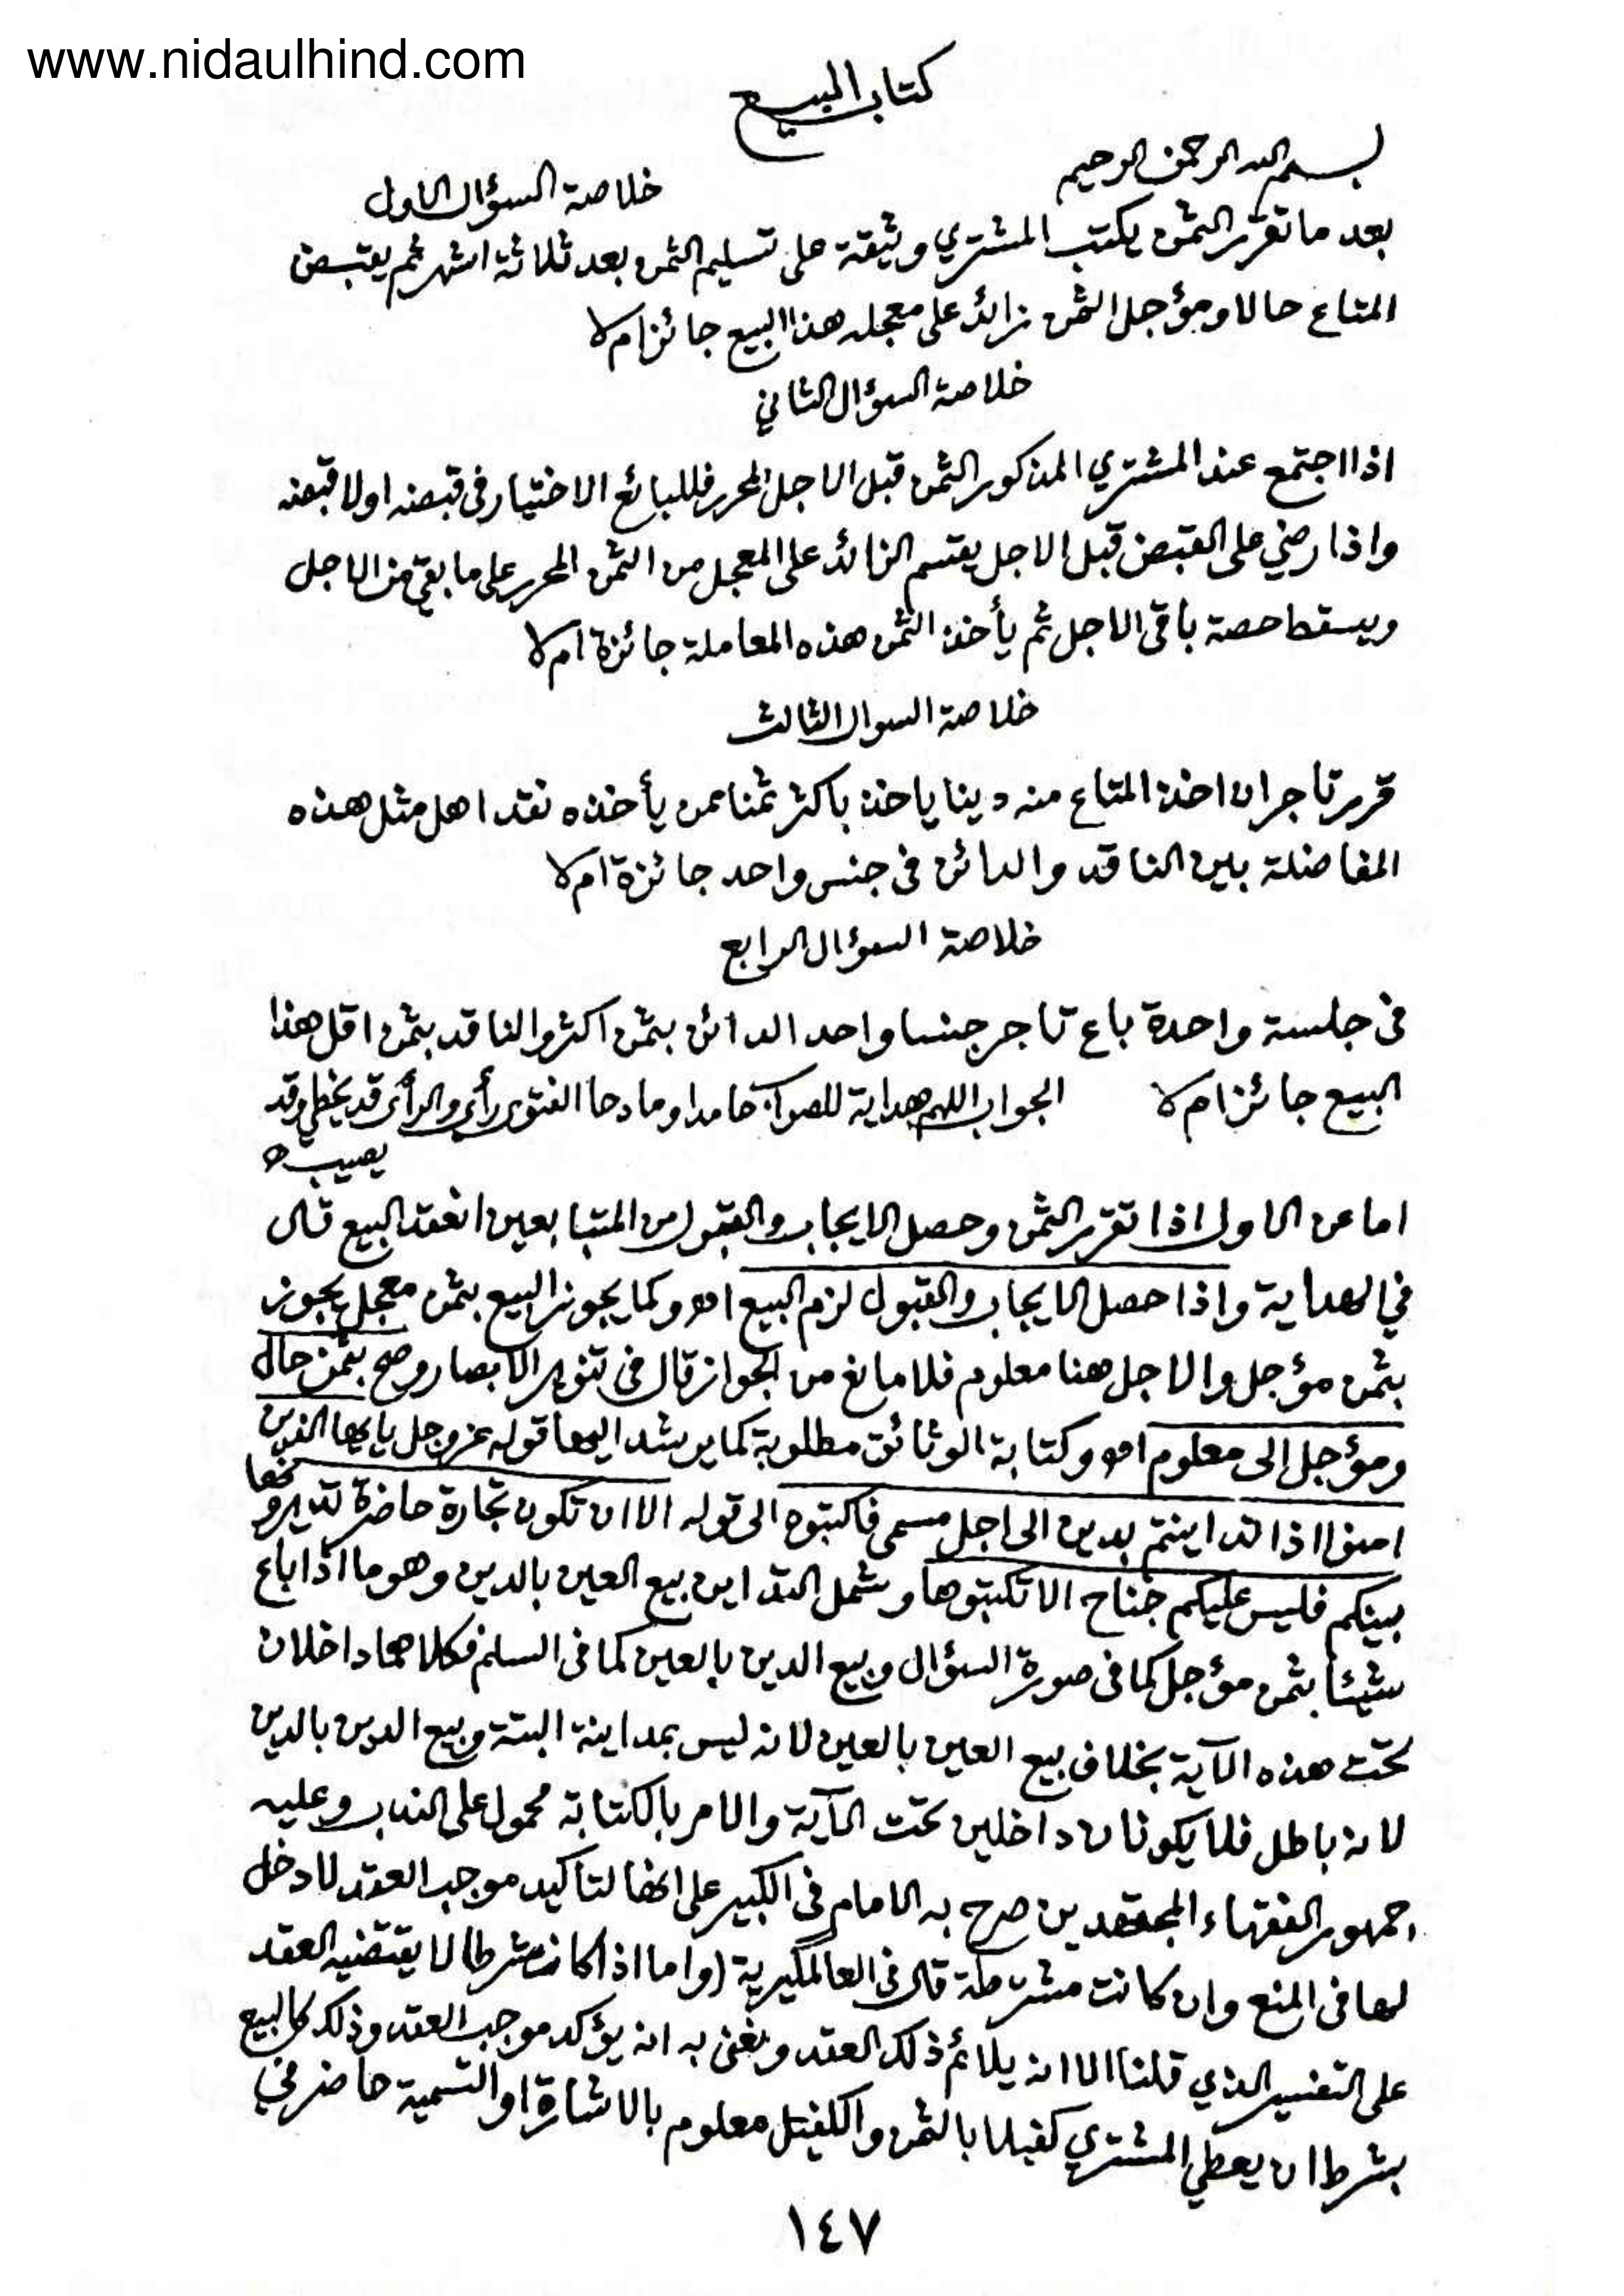 www.nidaulhind.com
كتاب البيع
بسم الله الرحمن الرحيم
خلاصة السؤال الاول
بعد ما تقرر الثمن يكتب المشتري وثيقة على تسليم الثمن بعد ثلاثة اشهر ثم يقبض
المتاع حالا ومؤجل الثمن زائد على معجله هذا البيع جائز ام لا
خلاصة السؤال الثاني
اذا اجتمع عند المشتري المذكور الثمن قبل الاجل المحرر فللبائع الاختيار فى قبضه اولا قبضه
واذا رضي على القبض قبل الاجل يقسم الزائد على المعجل من الثمن المحرر على ما بقي من الاجل
ويسقط حصة باقى الاجل ثم يأخذ الثمن هذه المعاملة جائزة ام لا
خلاصة السوال الثالث
قرر تاجر ان اخذ المتاع منه دينا ياخذ باكثر ثمنا ممن يأخذه نقدا هل مثل هذه
المفاضلة بين الناقد والدائن فى جنس واحد جائزة ام لا
خلاصة السؤال الرابع
فى جلسة واحدة باع تاجر جنسا واحد الدائن بثمن اكثر والناقد بثمن اقل هذا
البيع جائز ام لا الجواب اللهم هداية للصواب حامدا ومادحا الفتوى رأي والرأى قد يخطي وقد
يصيب
اما عن الاول اذا تقرر الثمن وحصل الايجاب والقبول من المتبابعين انعقد البيع قال
في الهداية واذا حصل الايجاب والقبول لزم البيع اه وكما يجوز البيع بثمن معجل يجوز
بثمن مؤجل والاجل هنا معلوم فلا مانع من الجواز قال فى تنوير الابصار وصح بثمن حال
ومؤجل الى معلوم اه وكتابة الوثائق مطلوبة كما يرشد اليها قوله عز وجل يايها الذين
امنوا اذا تداينتم بدين الى اجل مسمى فاكتبوه الى قوله الا ان تكون تجارة حاضرة تديرونها
بينكم فليس عليكم جناح الا تكتبوها وشمل التداين بيع العين بالدين وهو ما اذا باع
شيئا بثمن مؤجل كما فى صورة السؤال وبيع الدين بالعين كما فى السلم فكلاهما داخلان
تحت هذه الآية بخلاف بيع العين بالعين لانه ليس بمداينة البتة وبيع الدين بالدين
لانه باطل فلا يكونان داخلين تحت الآية والامر بالكتابة محمول على الندب وعليه
جمهور الفقهاء المجتهدين صرح به الامام فى الكبير على انها لتاكيد موجب العقد لا دخل
لها فى المنع وان كانت مشترطة قال فى العالمگيرية (واما اذا كانت شرطا لا يقتضيه العقد
على التفسير الذي قلنا الا انه يلائم ذلك العقد ونعني به انه يؤكد موجب العقد وذلك كالبيع
بشرط ان يعطي المشتري كفيلا بالثمن والكفيل معلوم بالاشارة او التسمية حاضر في
١٤٧